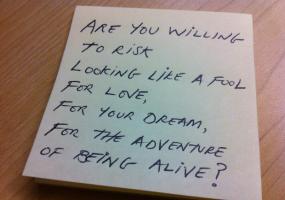 ARE YOU WILLING
TO RISK
LOOKING LIKE A FOOL
FOR LOVE,
FOR YOUR DREAM,
FOR THE ADVENTURE
OF BEING ALIVE?